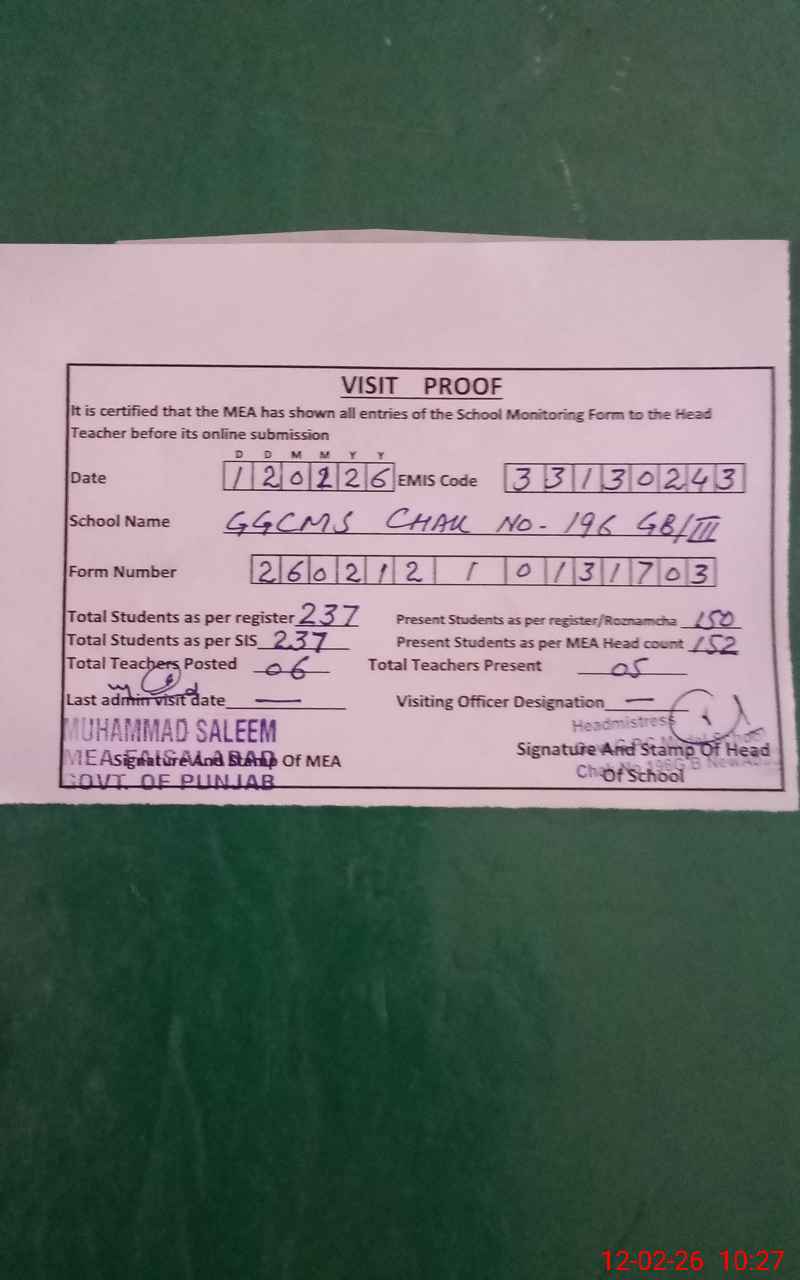 VISIT PROOF
It is certified that the MEA has shown all entries of the School Monitoring Form to the Head
Teacher before its online submission
D D M M Y Y
Date 120226 EMIS Code 33130243
School Name GGCMS CHAK NO- 196 GB/III
Form Number 260212 1 0131703
Total Students as per register 237 Present Students as per register/Roznamcha 150
Total Students as per SIS 237 Present Students as per MEA Head count 152
Total Teachers Posted 06 Total Teachers Present 05
Last admin visit date — Visiting Officer Designation —
MUHAMMAD SALEEM Headmistress
MEA FAISALABAD
Signature And Stamp Of MEA Signature And Stamp Of Head
GOVT. OF PUNJAB Of School
12-02-26 10:27